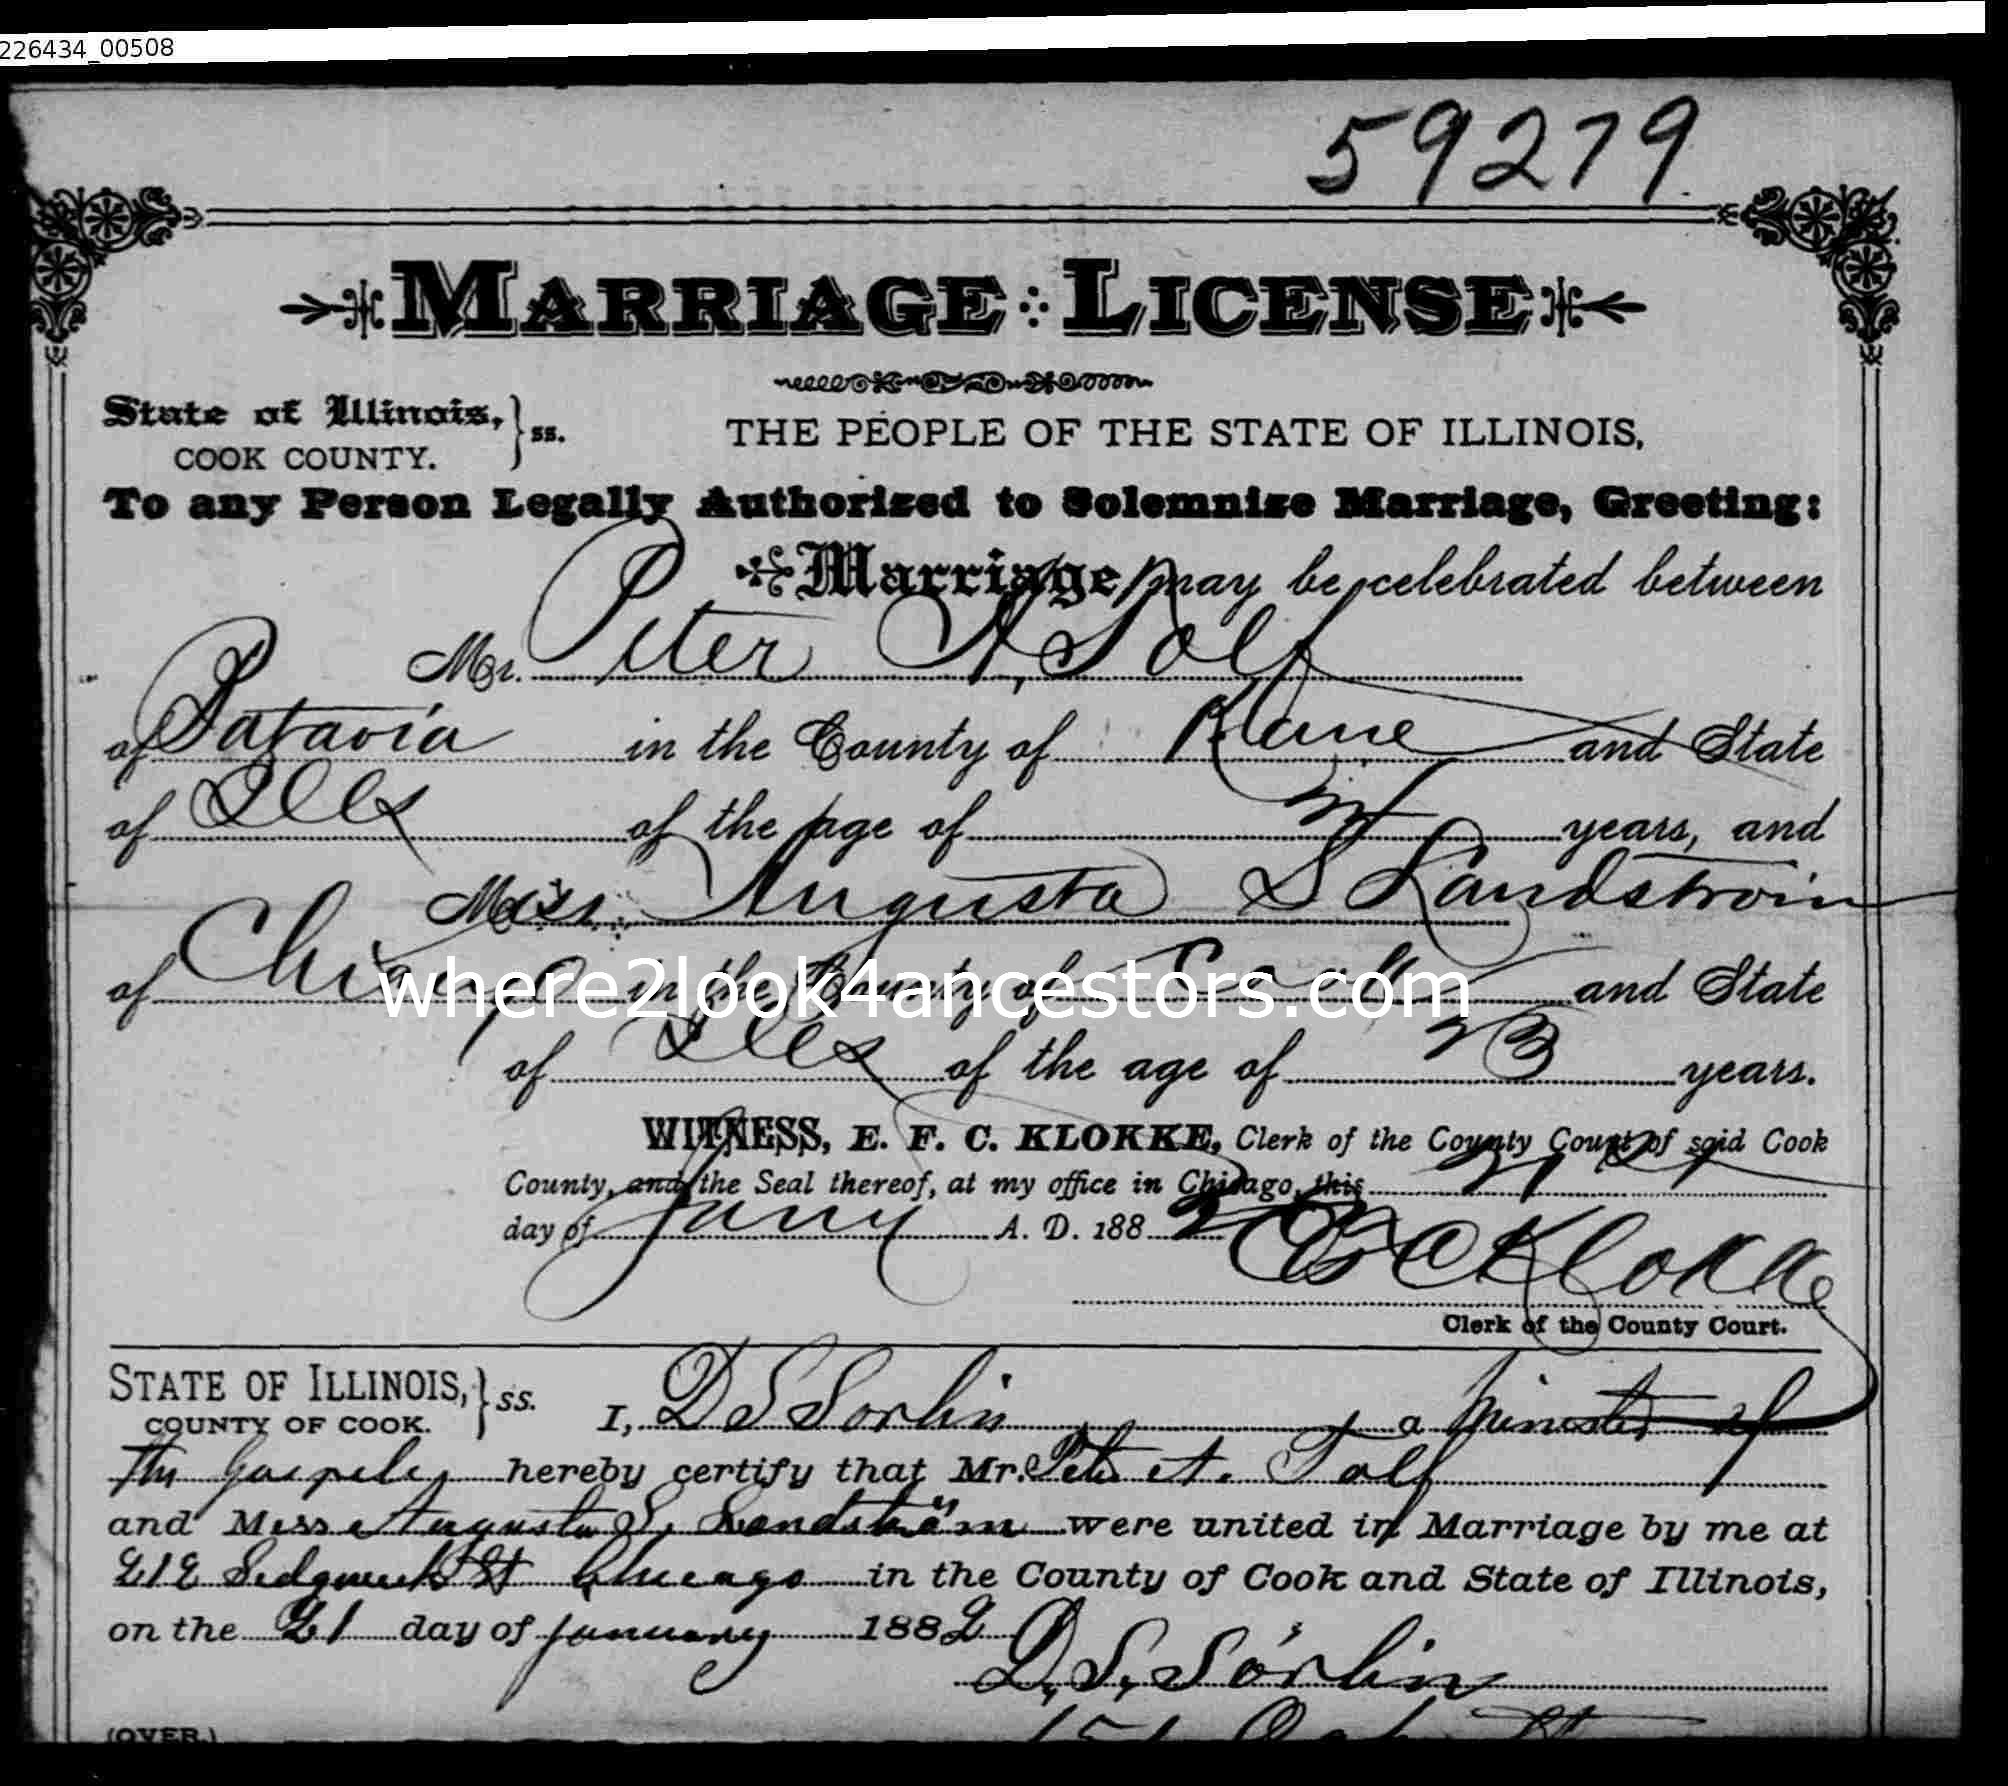 226434_00508
59279
MARRIAGE LICENSE
State of Illinois, } ss.
COOK COUNTY.
THE PEOPLE OF THE STATE OF ILLINOIS,
To any Person Legally Authorized to Solemnize Marriage, Greeting:
Marriage may be celebrated between
Mr. Peter A. Tolf
of Batavia in the County of Kane and State
of Ills of the age of years, and
Miss Augusta S Sandstrom
of Chicago in the County of Cook and State
of Ills of the age of 23 years.
WITNESS, E. F. C. KLOKKE, Clerk of the County Court of said Cook
County, and the Seal thereof, at my office in Chicago, this 21st
day of Jany A. D. 1882
E F C Klokke
Clerk of the County Court.
STATE OF ILLINOIS, } ss.
COUNTY OF COOK.
I, D S Sorlin a Minister of
The Gospel, hereby certify that Mr. Peter A. Tolf
and Miss Augusta S. Sandström were united in Marriage by me at
212 Sedgwick St Chicago in the County of Cook and State of Illinois,
on the 21 day of January 1882
D. S. Sörlin
(OVER.)
151 Oak St
where2look4ancestors.com